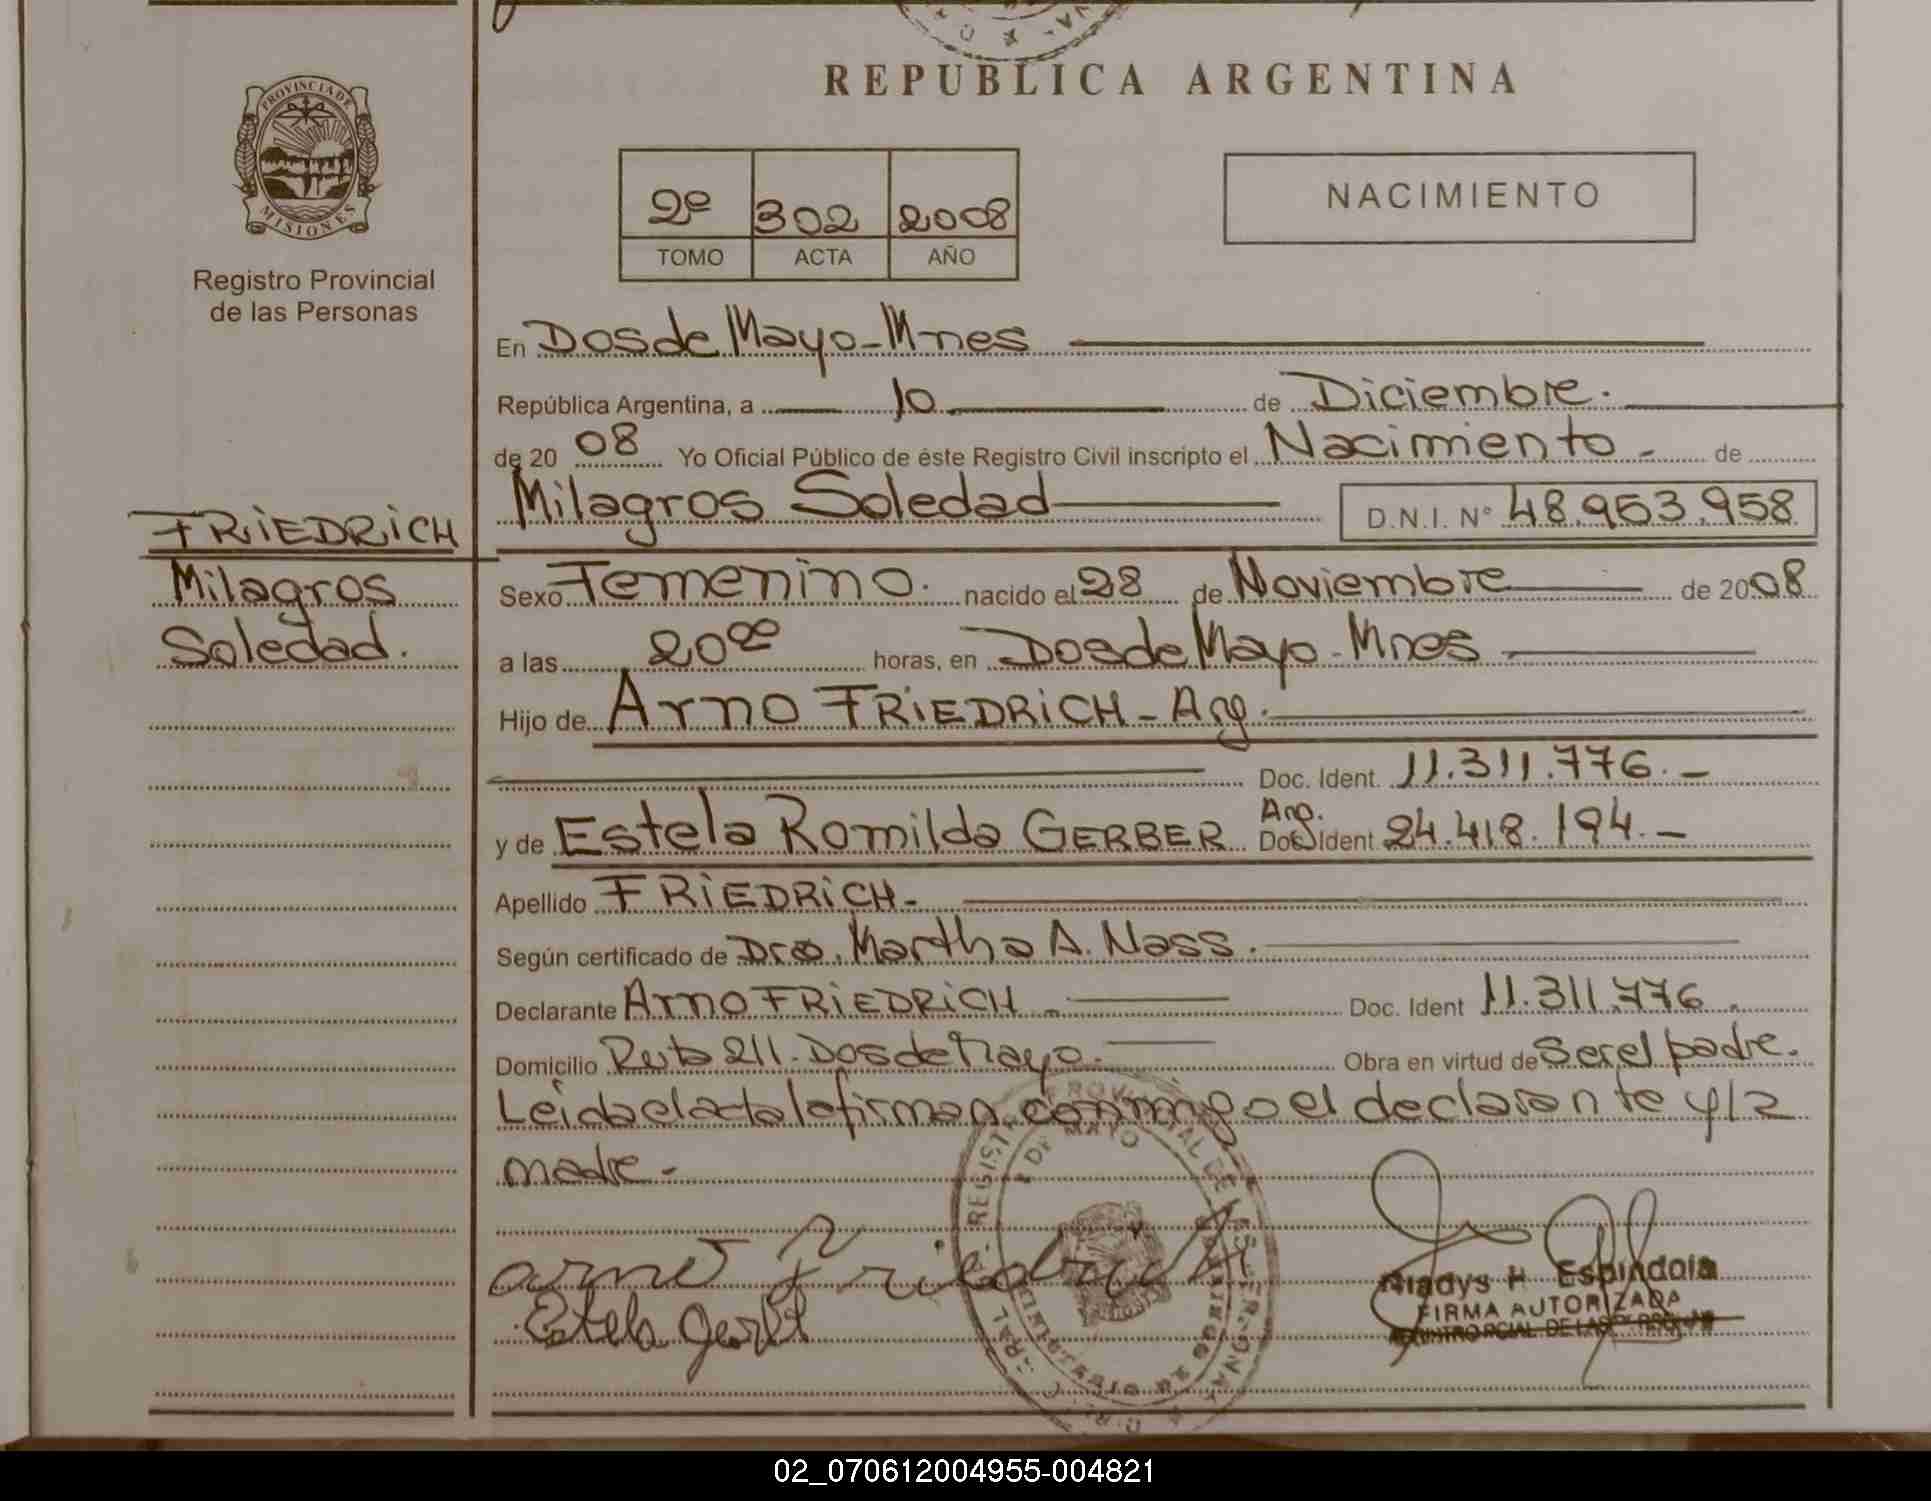 REPUBLICA ARGENTINA
PROVINCIA DE
MISIONES
Registro Provincial
de las Personas
2º 302 2008
TOMO ACTA AÑO
NACIMIENTO
En Dos de Mayo - Mnes
República Argentina, a 10 de Diciembre.
de 20 08 Yo Oficial Público de éste Registro Civil inscripto el Nacimiento - de
Milagros Soledad D.N.I. Nº 48.953.958
FRIEDRICH
Milagros
Soledad.
Sexo Femenino. nacido el 28 de Noviembre de 2008
a las 20⁰⁰ horas, en Dos de Mayo - Mnes
Hijo de Arno FRIEDRICH - Arg.
Doc. Ident. 11.311.776.-
y de Estela Romilda GERBER Arg. Doc. Ident 24.418.194.-
Apellido FRIEDRICH-
Según certificado de Dra. Martha A. Nass.
Declarante Arno FRIEDRICH - Doc. Ident 11.311.776.
Domicilio Ruta 211. Dos de Mayo. Obra en virtud de Ser el padre.
Leida el acta la firman conmigo el declarante y la
madre-
arno Friedrich
Estela
Gladys H Espindola
FIRMA AUTORIZADA
02_070612004955-004821